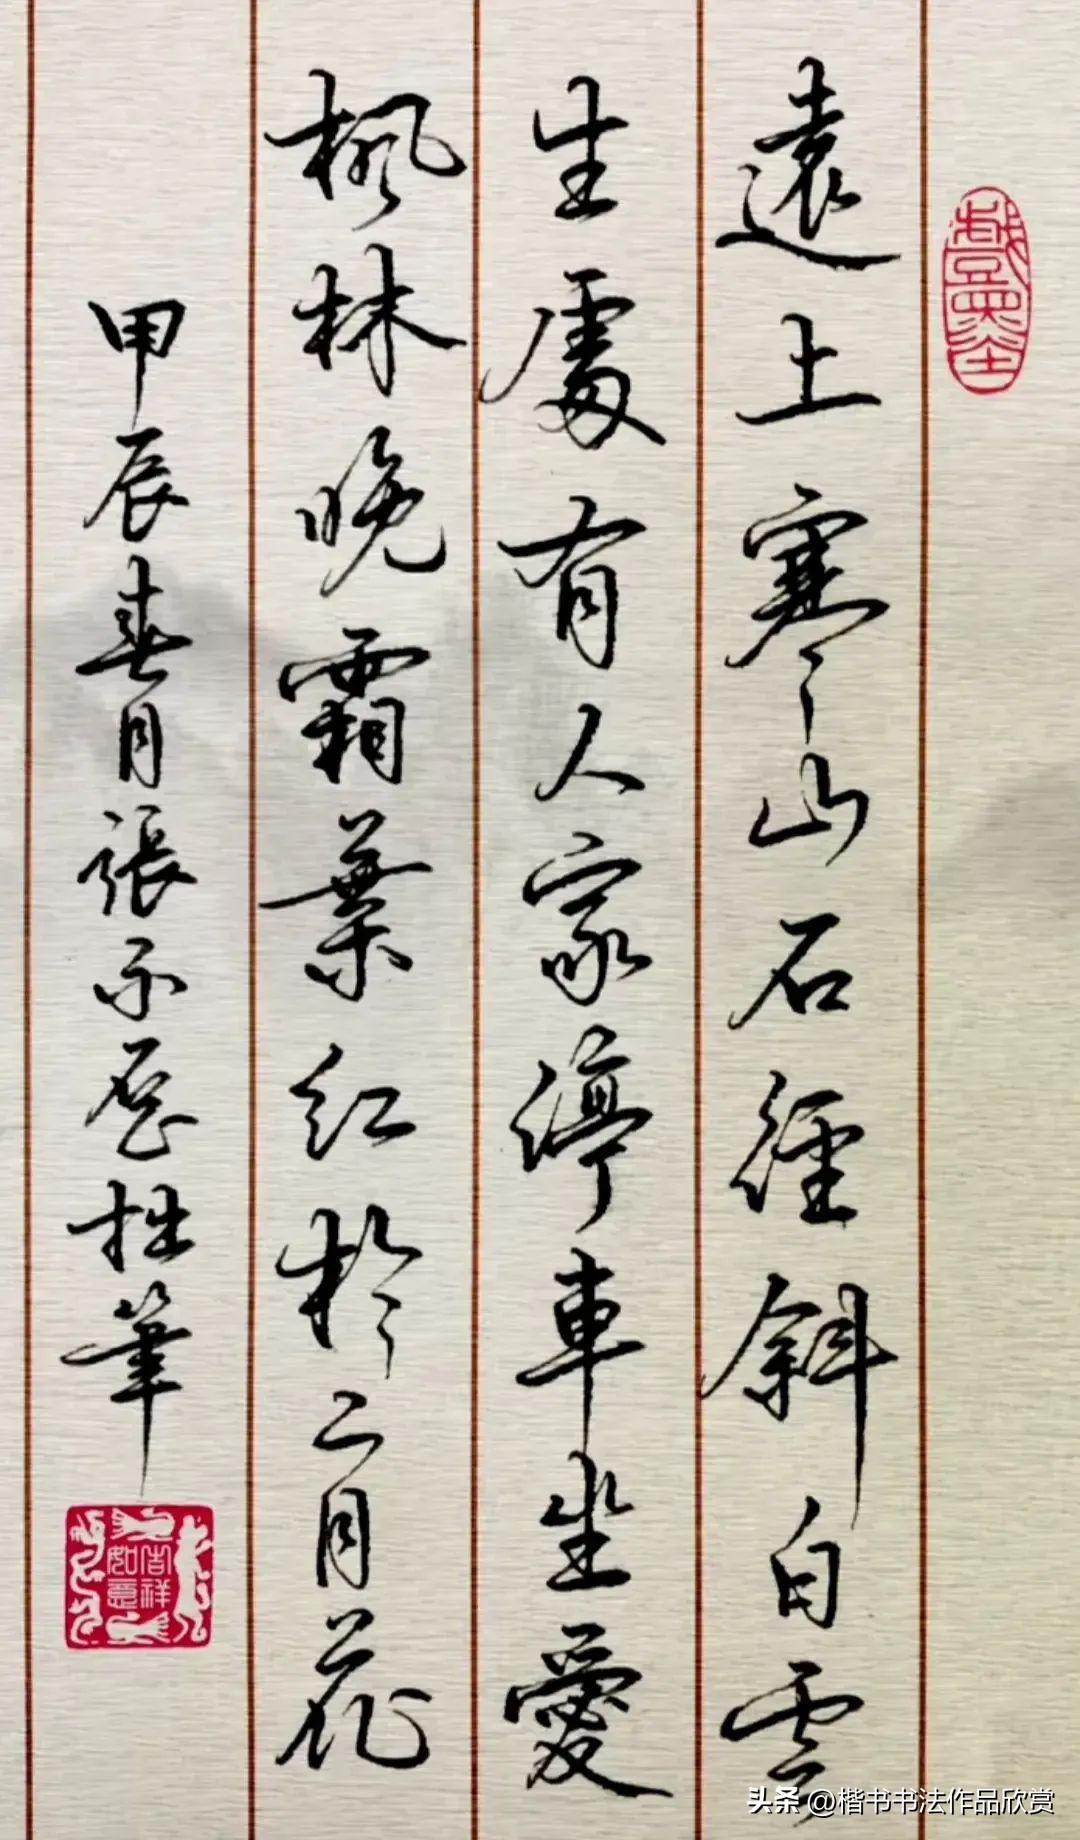 遠上寒山石徑斜白雲
生處有人家停車坐愛
楓林晚霜葉紅於二月花
甲辰春月張拙筆
吉祥如意
头条 @楷书书法作品欣赏